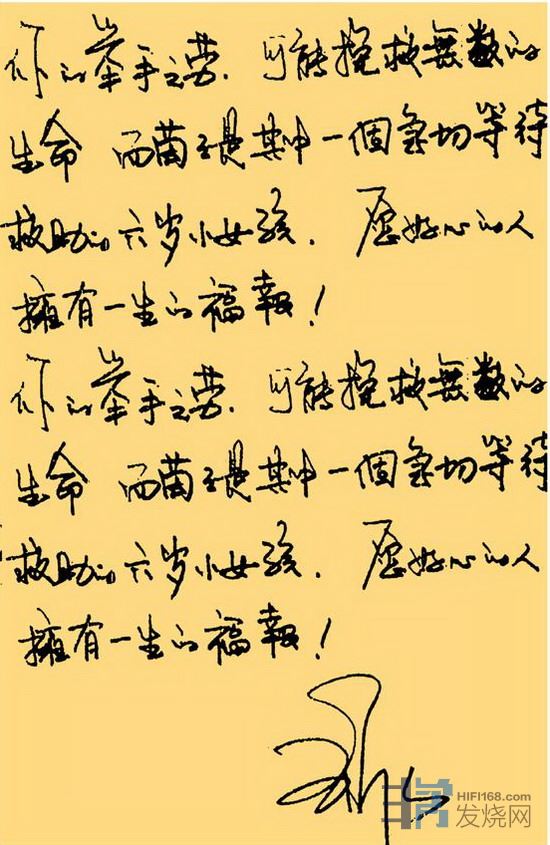 你的举手之劳.可能挽救無數的
生命 而苗々是其中一個急切等待
救助的六岁小女孩. 愿好心的人
擁有一生的福報!
你的举手之劳.可能挽救無數的
生命 而苗々是其中一個急切等待
救助的六岁小女孩. 愿好心的人
擁有一生的福報!
HIFI168.com
发烧网